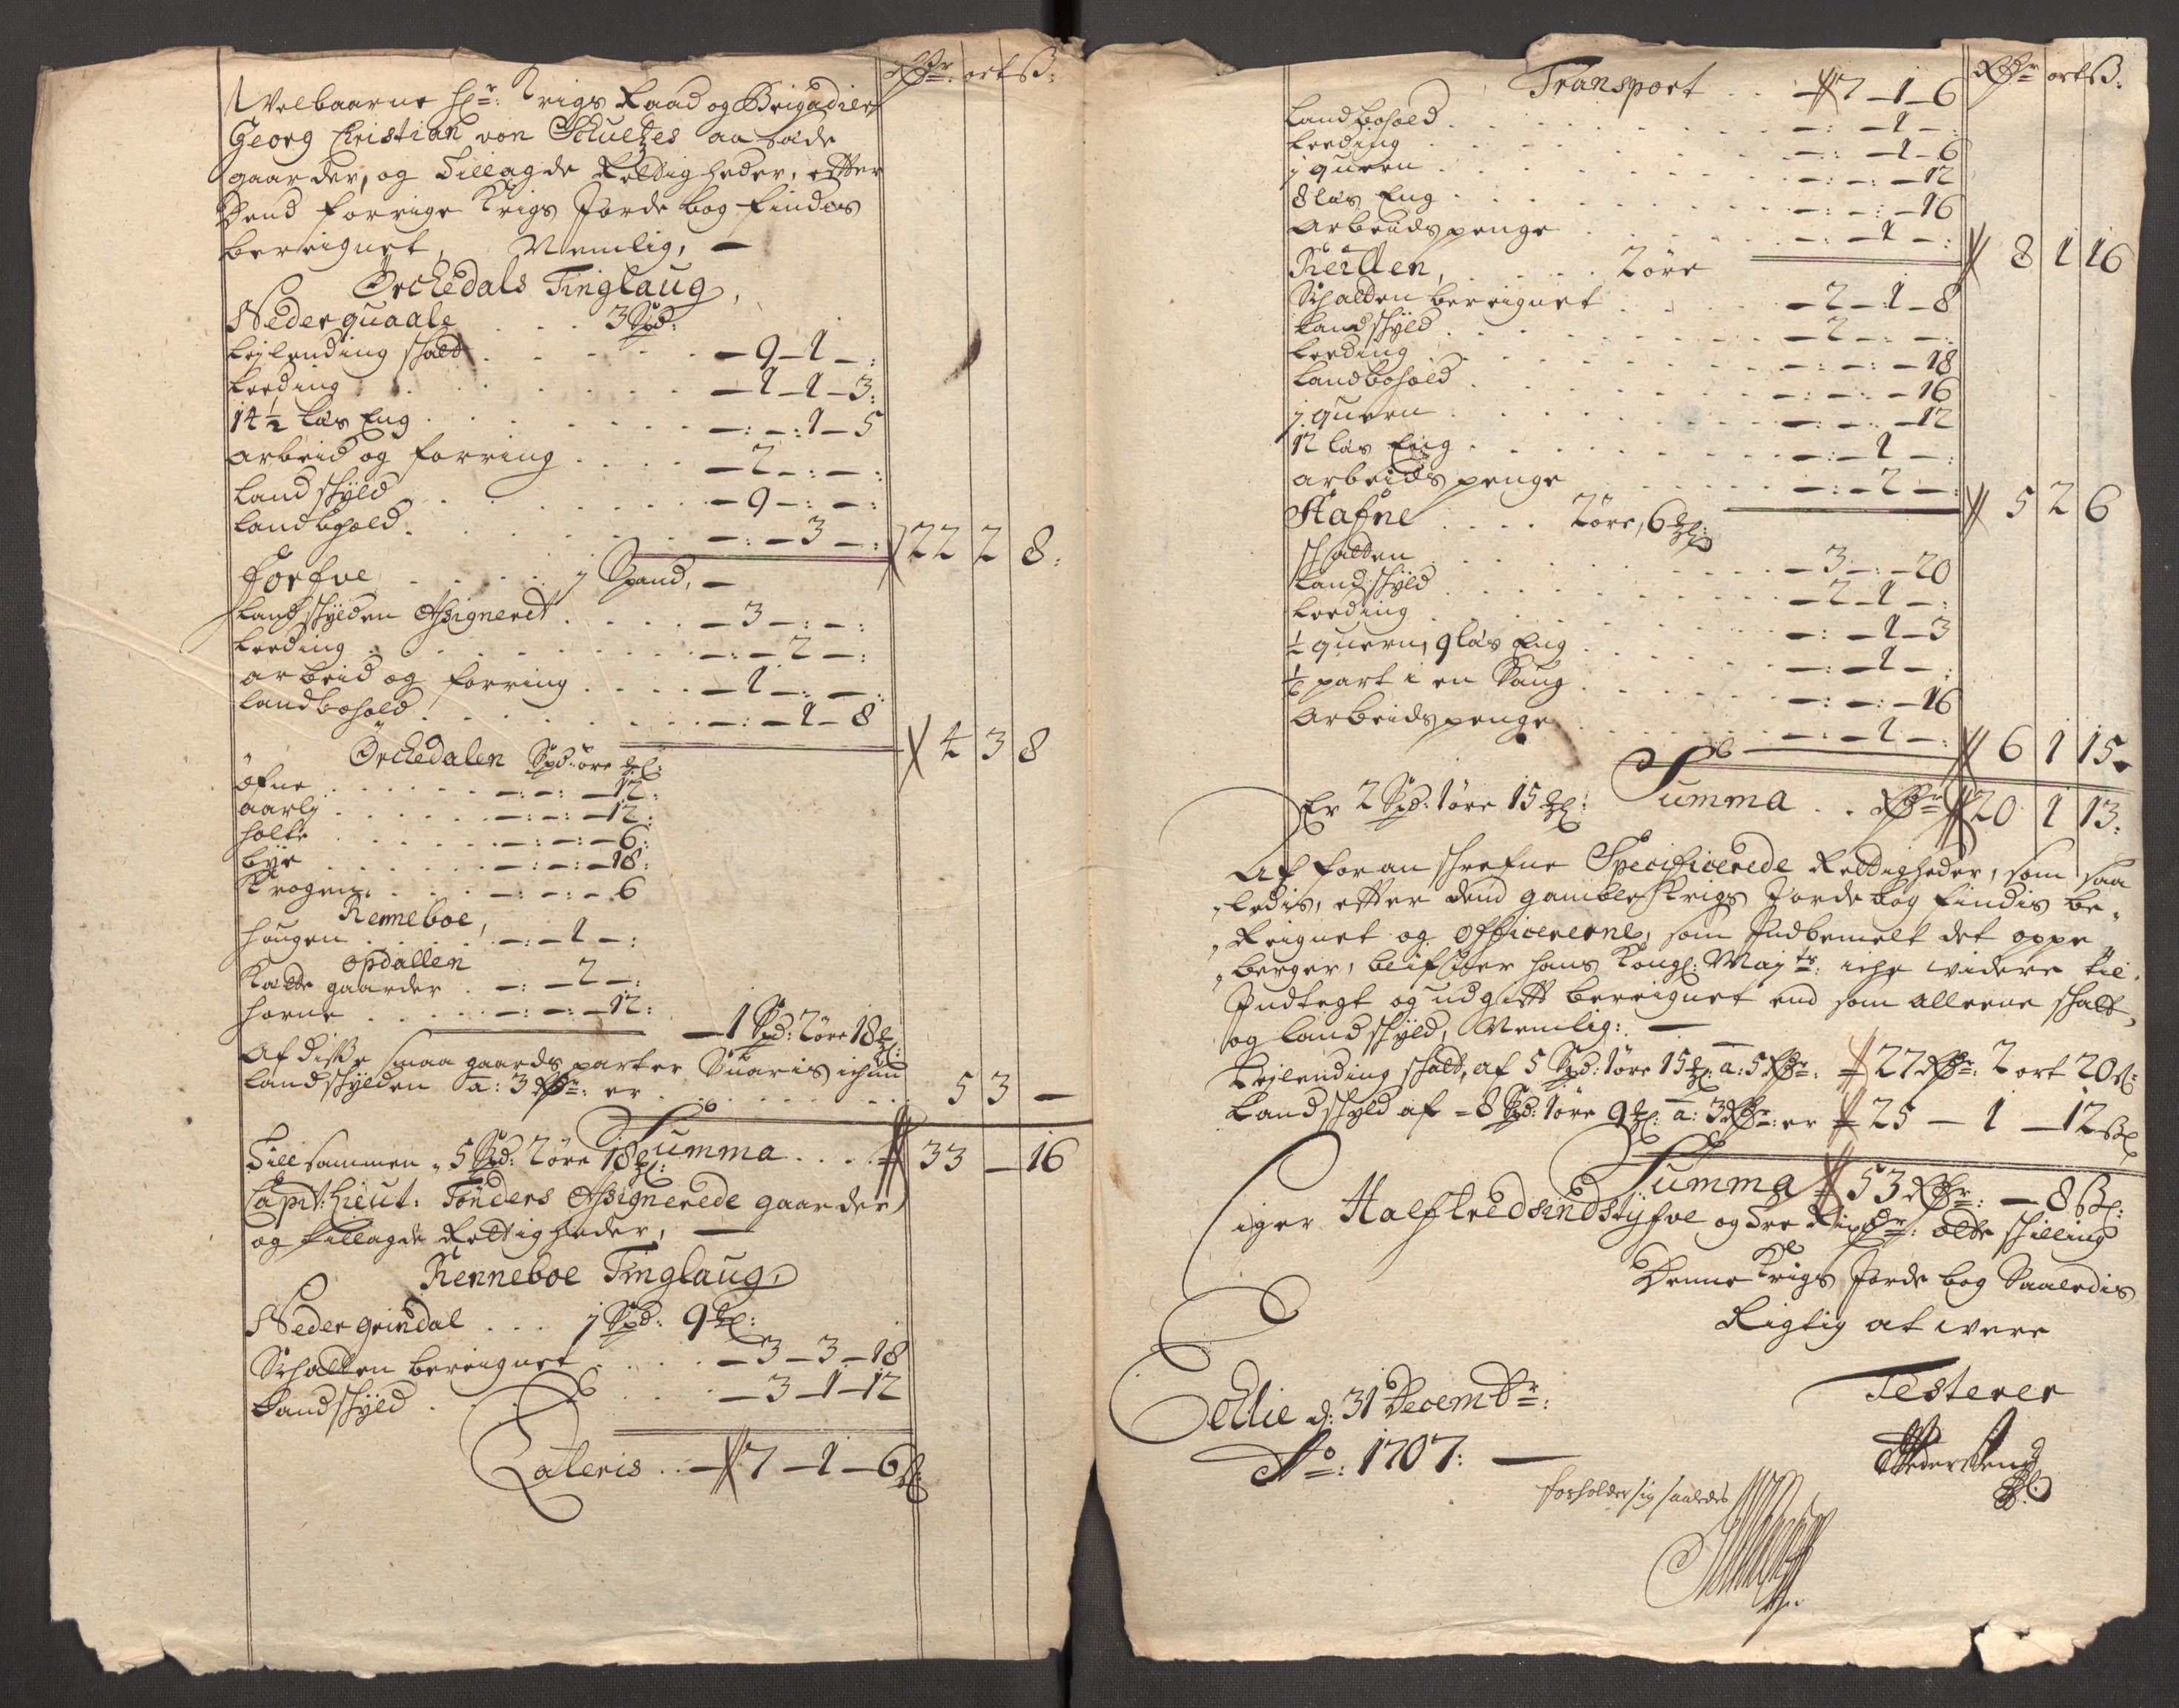 Rdr: ort ß:
Welbaarne Hr: Krigs Raad og Brigadier
Georg Christian von Schultzes aa boede
gaarder, og Tillagde Rettigheder, efter
Dend forrige Krigs Jordebog findes
bereignet, Nemlig, —
Örckedals Tinglaug,
Neder quaale . . . 3 Spd:
Leylending schatt . . . — 9 — 1 — :
Leeding . . . — 1 — 1 — 3:
14½ Las Eng . . . — : — : 1 — 5
Arbeid og forring . . . — 2 — : — :
Landskÿld . . . — 9 — : — :
Landbohold . . . — : — 3 — : 22 | 2 | 8:
Forfve . . . j Spand, —
Landskÿlden Assigneret . . . — 3 — : — :
Leeding . . . — : — 2 — :
Arbeid og forring . . . — 1 — : — :
Landbohold . . . — : — 1 — 8 4 | 3 | 8
Örckedalen Spd: öre Ml:
öfne . . . — : — : — 12:
aarly . . . — : — : — 12:
holte . . . — : — : — 6:
bye . . . — : — : — 18:
Krogen . . . — : — : — 6
Renneboe,
Hougen . . . — : — 1 — :
Opdallen
Katte gaarder . — : — 2 — :
Horne . . . — : — : — 12:
— 1 Spd: 2 öre 18 Ml:
Af disse smaa gaards parter Suaris ickun
Landskÿlden a: 3 Rdr: er . . . 5 | 3 | —
Tillsammen, 5 Spd: 2 öre 18 Ml: Summa . . . 33 | — | 16
Capit: Lieut: Tönders Assignerede gaarder
og tillagde Rettigheder, —
Renneboe Tinglaug,
Neder grindal . . . j Spd: 9 Ml:
Schatten bereignet . . . — 3 — 3 — 18
Landskÿld . . . — 3 — 1 — 12
Lateris . . — 7 — 1 — 6 ß:
Rdr ort ß:
Transport . . — 7 — 1 — 6
Landbohold . . . — : — 1 — :
Leeding . . . — : — 1 — 6
j quern . . . — : — : — 12
8 las Eng . . . — : — : — 16
Arbeidspenge . . . — : — 1 — : 8 | 1 | 16
Reillen, . . . 2 öre
Schatten bereignet . . . — 2 — 1 — 8
Landskÿld . . . — 2 — : — :
Leeding . . . — : — : — 18
Landbohold . . . — : — : — 16
j quern . . . — : — : — 12
12 las Eng . . . — : — 1 — :
Arbeids penge . . . — : — 2 — : 5 | 2 | 6
Stafne . . . 2 öre, 6 Ml:
Schatten . . . — 3 — : — 20
Landskÿld . . . — 2 — 1 — :
Leeding . . . — : — 1 — 3
½ quern, 9 las Eng . . . — : — 1 — :
⅙ part i en Saug . . . — : — : — 16
Arbeidspenge . . . — : — 1 — : 6 | 1 | 15
Er 2 Spd: 1 öre 15 Ml: Summa . . Rdr 20 | 1 | 13:
Af foranschrefne Specificerede Rettigheder, som saa
ledis, efter dend gamble Krigs Jordebog findis be,,
,,Reignet og Officererne, som Indbemelt det oppe
,,berger, blifver hans Kongl: Maytr: iche widere til
Indtegt og udgift bereignet end som alleene schatt,
og landskÿld, Nemlig: —
Leylending schatt, af 5 Spd: 1 öre 15 Ml: a: 5 Rdr: 27 Rdr: 2 ort 20 ß:
Landskÿld af = 8 Spd: 1 öre 9 Ml: a: 3 Rdr: er 25 — 1 — 12 ß:
Summa 53 Rdr: — 8 ß:
siger Halftredsindstÿfve og Tre Rixdr: otte skilling
Denne Krigs Jorde bog Saaledis
Rigtig at were
Testerer
Tellie d: 31 Decembr:
Ao: 1707: —
forholder sig saaledes